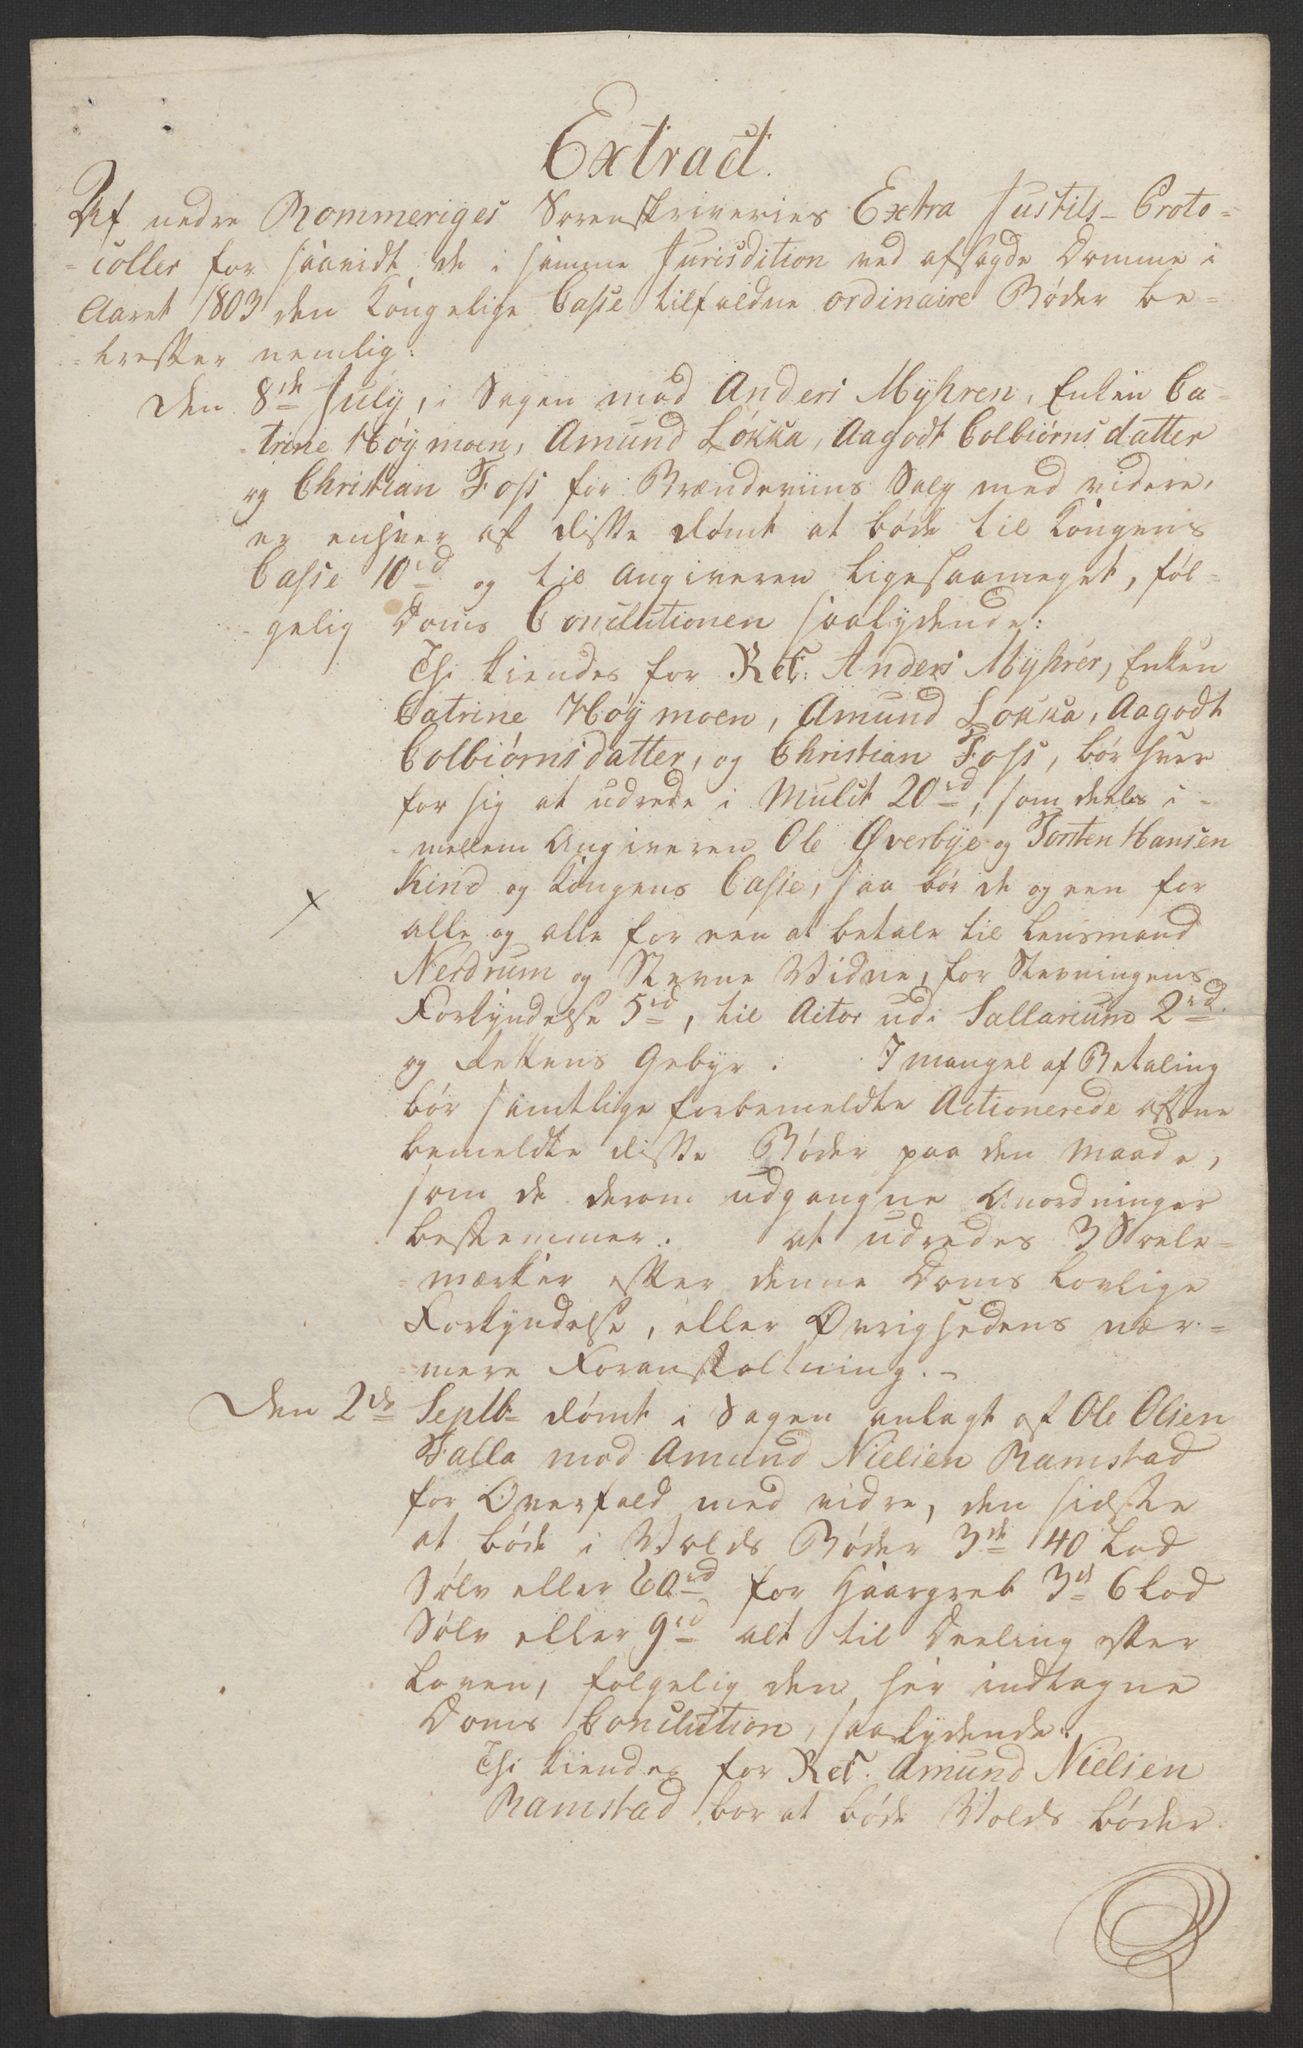 Extract.
Af nedre Rommeriges Sorenskriveries Extra Justits- Proto-
-coller for saavidt de i samme Jurisdition ved afsagde Domme i
Aaret 1803 den Kongelige Casse tilfaldne ordinaire Bøder be-
-træffer nemlig:
Den 8de July, i Sagen mod Anders Myhren, Enken Ca-
-trine Høymoen, Amund Løkka, Aagodt Colbiørnsdatter
og Christian Foss for Brændeviins Salg med videre,
er enhver af disse dømt at bøde til Kongens
Casse 10rd og til Angiveren ligesaameget, føl-
-gelig Doms Conclutionen saalydende:
Thi kiendes for Ret: Anders Myhrer, Enken
Catrine Høymoen, Amund Løkka, Aagodt
Colbiørnsdatter, og Christian Foss, bør hver
for sig at udrede i Mulct 20rd, som deeles i-
-mellem Angiveren Ole Øverbye og Torsten Hansen
Kind og Kongens Casse, saa bør de og een for
alle og alle for een at betale til Lensmand
Nerdrum og Stevne Vidne, for Stevningens
Forkyndelse 5rd, til Actor udi Sallarium 2rd
og Rettens Gebyr. I mangel af Betaling
bør samtlige forbemeldte Actionerede afsone
bemeldte disse Bøder paa den Maade,
som de derom udgangne Anordninger
bestemmer. at udredes 3 Sole-
-mærker efter denne Doms lovlige
Forkyndelse, eller Øvrighedens nær-
-mere Foranstaltning.-
Den 2de Septb dømt i Sagen anlagt af Ole Olsen
Falla mod Amund Nielsen Ramstad
for Overfald med vidre, den sidste
at bøde i Volds Bøder 3de 40 Lod
Sølv eller 60rd for Haargreb 3de 6 Lod
Sølv eller 9rd alt til Deeling efter
Loven, følgelig den her indtagne
Doms Conclution, saalydende:
Thi kiendes for Ret. Amund Nielsen
Ramstad bør at bøde Volds bøder